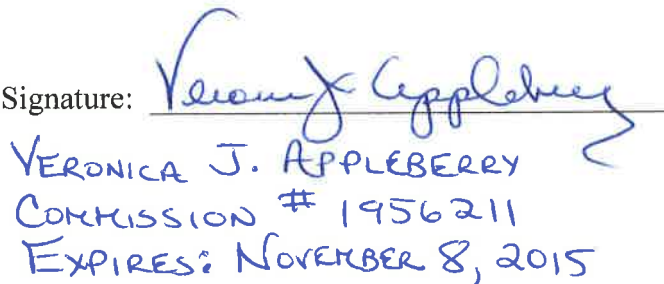 Signature: Veronica J. Appleberry
VERONICA J. APPLEBERRY
COMMISSION # 1956211
EXPIRES: NOVEMBER 8, 2015